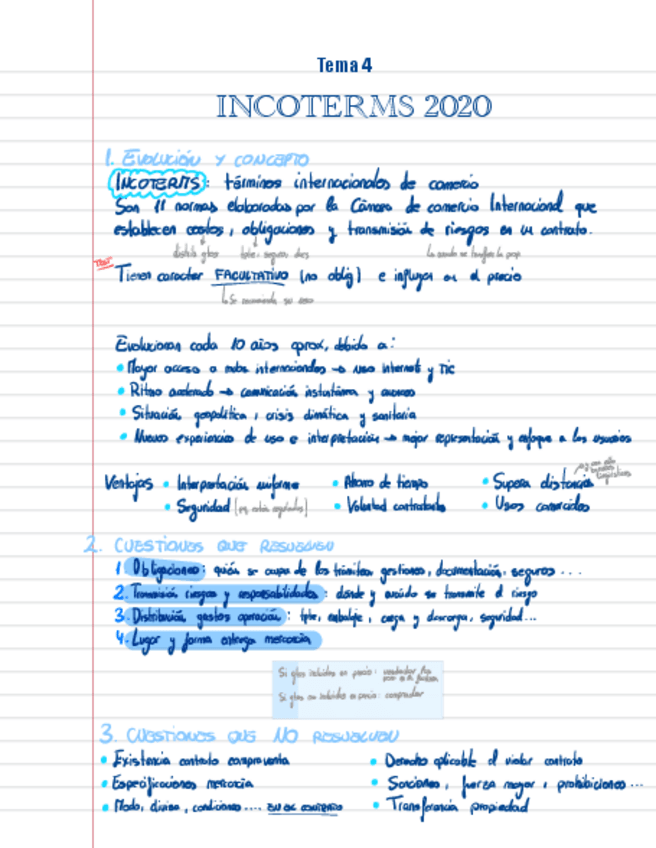 Tema 4
INCOTERMS 2020
1. EVOLUCIÓN Y CONCEPTO
INCOTERMS: términos internacionales de comercio
Son 11 normas elaboradas por la Cámara de comercio Internacional que
establecen costos, obligaciones y transmisión de riesgos en un contrato.
TEST
Tienen caracter FACULTATIVO (no oblig) e influyen en el precio
Se recomienda su uso
Evolucionan cada 10 años aprox, debido a:
• Mayor acceso a internacionales → uso internet y TIC
• Ritmo acelerado → comunicación instantánea y
• Situación geopolítica, crisis climática y sanitaria
• Nuevas experiencias de uso e interpretación → mejor representación y enfoque a los usuarios
Ventajas • Interpretación uniforme • Ahorro de tiempo • Supera distancia
• Seguridad • Voluntad contractual • Usos comerciales
2. CUESTIONES QUE RESUELVEN
1 Obligaciones: quién se ocupa de los trámites, gestiones, documentación, seguros ...
2. Transmisión riesgos y responsabilidades: dónde y cuándo se transmite el riesgo
3. Distribución gastos operación: tpte, embalaje, carga y descarga, seguridad...
4. Lugar y forma entrega mercancía
Si gtos incluidos en precio: vendedor
Si gtos no incluidos en precio: comprador
3. CUESTIONES QUE NO RESUELVEN
• Existencia contrato compraventa • Derecho aplicable al violar contrato
• Especificaciones mercancía • Sanciones, fuerza mayor, prohibiciones ...
• Modo, divisa, condiciones .... • Transferencia propiedad